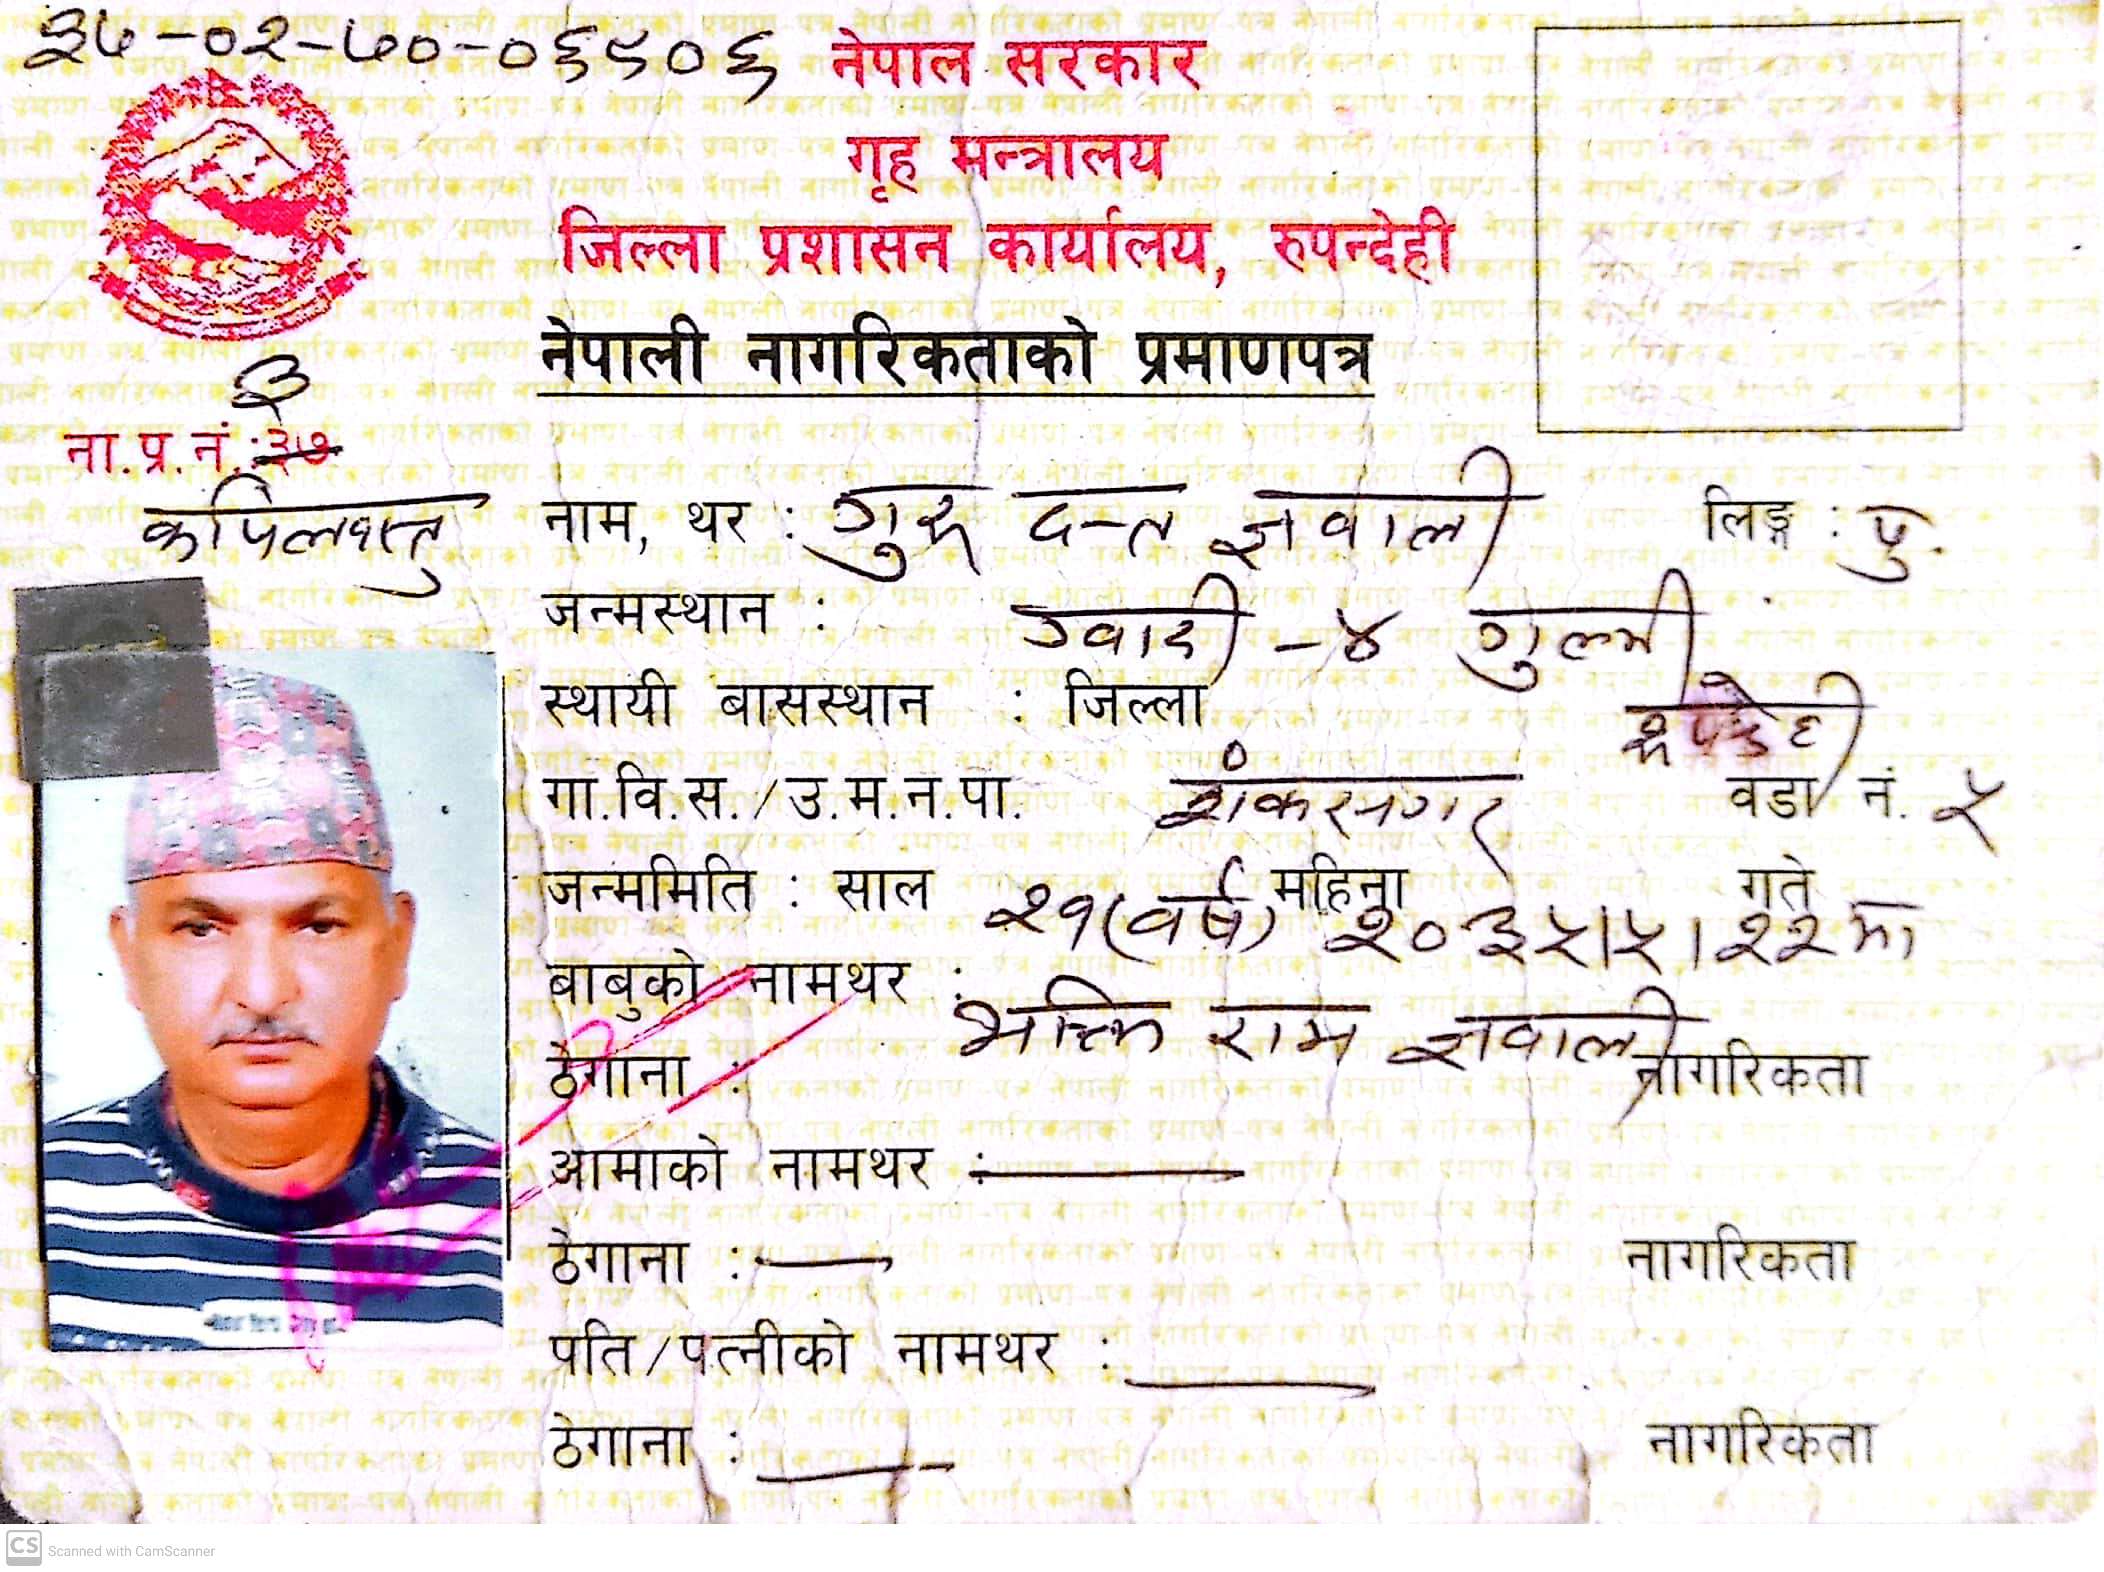 ३७-०२-७०-०६९०६
नेपाल सरकार
गृह मन्त्रालय
जिल्ला प्रशासन कार्यालय, रुपन्देही
नेपाली नागरिकताको प्रमाणपत्र
३
ना.प्र.नं.:३७
कपिलवस्तु
नाम, थर : गुरु दत्त ज्ञवाली लिङ्ग : पु.
जन्मस्थान : ग्वादी -४ गुल्मी
स्थायी बासस्थान : जिल्ला रुपन्देही
गा.वि.स./उ.म.न.पा. शंकरनगर वडा नं. ५
जन्ममिति : साल २१(वर्ष) महिना २०३५।५।२२ मा गते
बाबुको नामथर : भक्ति राम ज्ञवाली
ठेगाना : नागरिकता
आमाको नामथर :
ठेगाना : नागरिकता
पति/पत्नीको नामथर :
ठेगाना : नागरिकता
CS Scanned with CamScanner